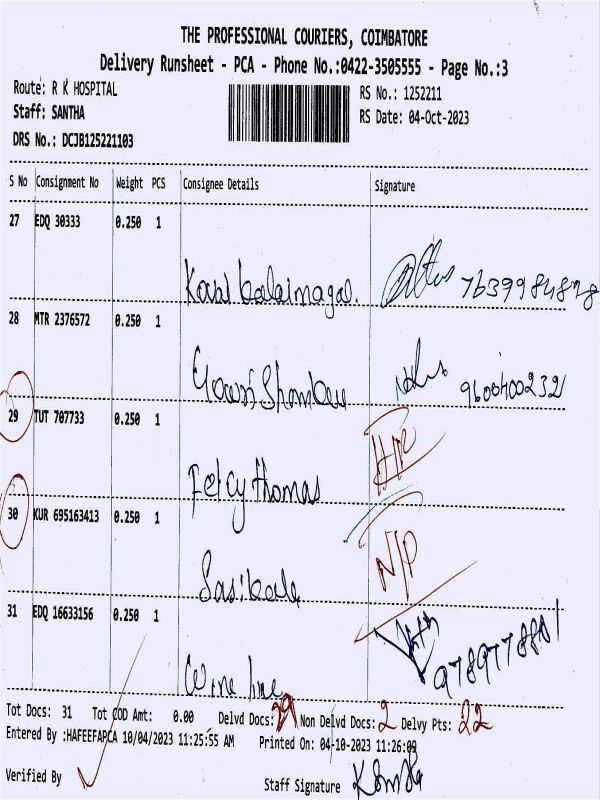 THE PROFESSIONAL COURIERS, COIMBATORE
Delivery Runsheet - PCA - Phone No.:0422-3505555 - Page No.:3
Route: R K HOSPITAL
RS No.: 1252211
Staff: SANTHA
RS Date: 04-Oct-2023
DRS No.: DCJB125221103
S No Consignment No Weight PCS Consignee Details Signature
27 EDQ 30333 0.250 1
Koval Kalaimagal. 7639984878
28 MTR 2376572 0.250 1
Gowri Shankar 9600400232
29 TUT 707733 0.250 1
Felcy Thomas
30 KUR 695163413 0.250 1
N/P
Sasikala
31 EDQ 16633156 0.250 1
9789778801
Wine line
Tot Docs: 31 Tot COD Amt: 0.00 Delvd Docs: 29 Non Delvd Docs: 2 Delvy Pts: 22
Entered By :HAFEEFAPCA 10/04/2023 11:25:55 AM Printed On: 04-10-2023 11:26:09
Verified By
Staff Signature